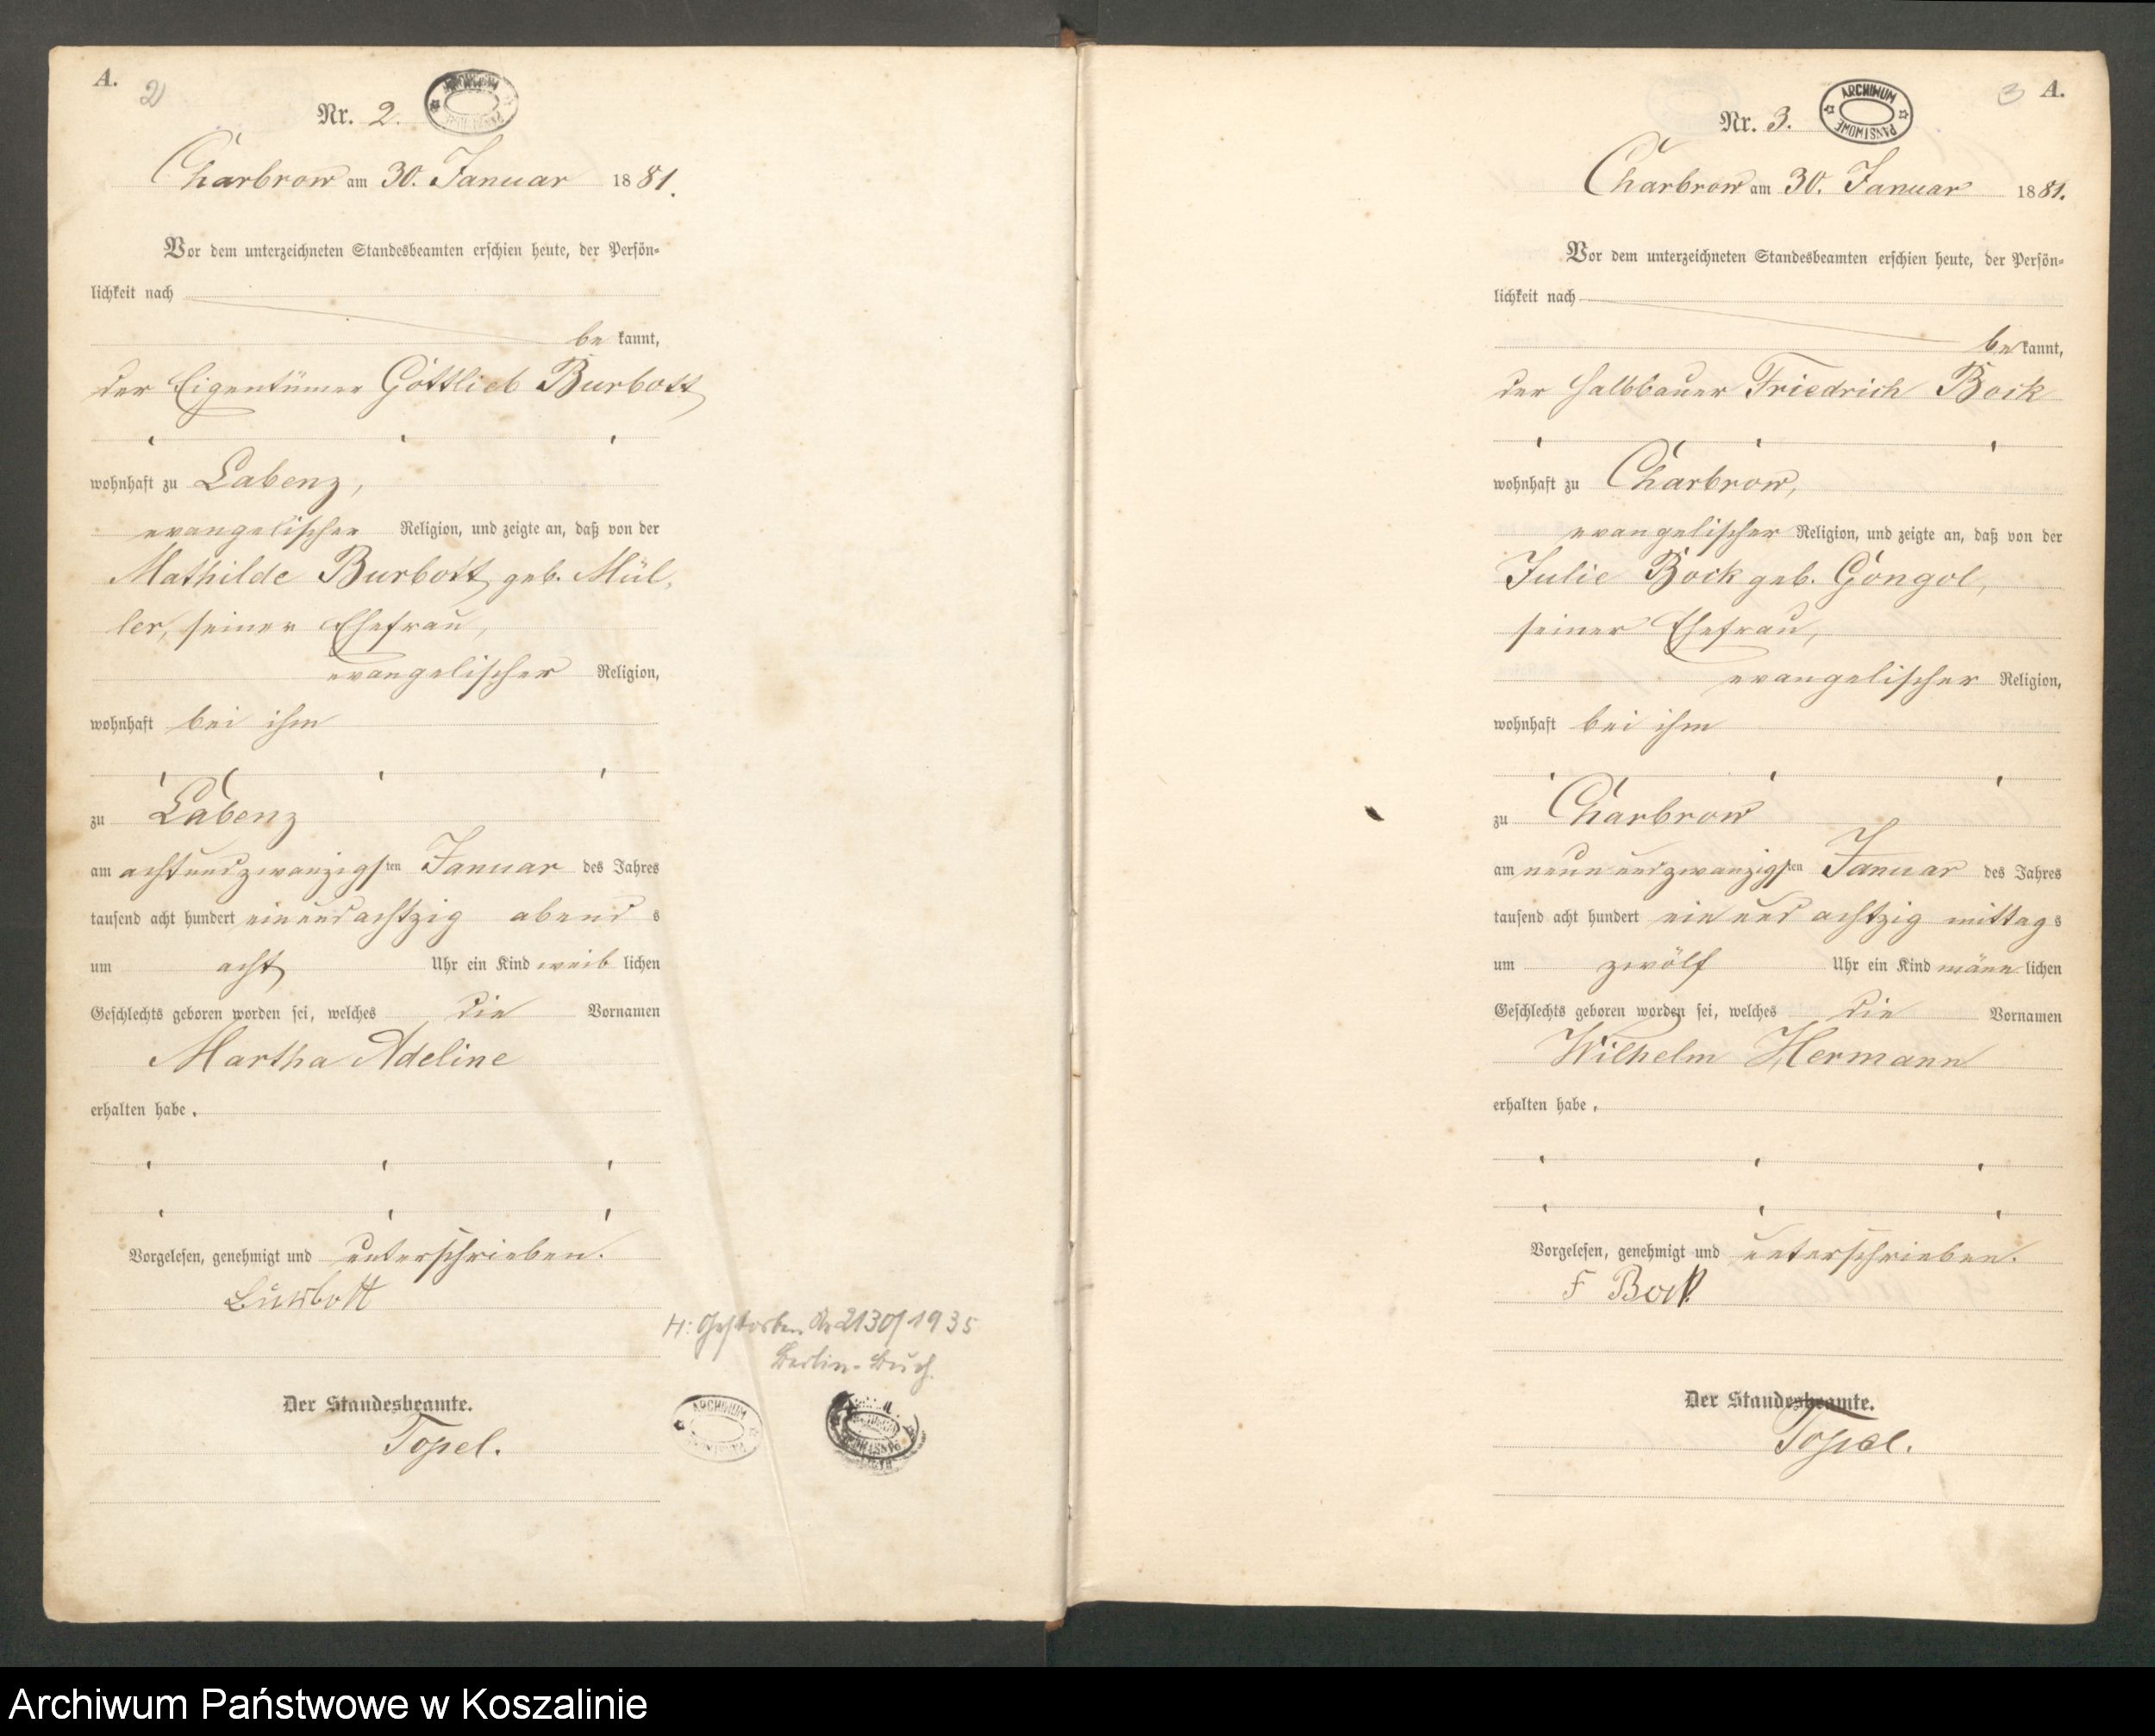 A.
2
Nr. 2.
ARCHIWUM
Charbrow am 30. Januar 1881.
Vor dem unterzeichneten Standesbeamten erschien heute, der Persön-
lichkeit nach
be kannt,
der Eigentümer Gottlieb Burbott
wohnhaft zu Labenz,
evangelischer Religion, und zeigte an, daß von der
Mathilde Burbott geb. Mül-
ler, seiner Ehefrau,
evangelischer Religion,
wohnhaft bei ihm
zu Labenz
am achtundzwanzigsten Januar des Jahres
tausend acht hundert einundachtzig abend s
um acht Uhr ein Kind weib lichen
Geschlechts geboren worden sei, welches die Vornamen
Martha Adeline
erhalten habe.
Vorgelesen, genehmigt und unterschrieben.
Burbott
H: Gestorben Nr 2130/1935
Berlin-Buch
Der Standesbeamte.
Topel.
ARCHIWUM
3 A.
Nr. 3.
ARCHIWUM PAŃSTWOWE
Charbrow am 30. Januar 1881.
Vor dem unterzeichneten Standesbeamten erschien heute, der Persön-
lichkeit nach
be kannt,
der Halbbauer Friedrich Bock
wohnhaft zu Charbrow,
evangelischer Religion, und zeigte an, daß von der
Julie Bock geb. Gongol,
seiner Ehefrau,
evangelischer Religion,
wohnhaft bei ihm
zu Charbrow
am neunundzwanzigsten Januar des Jahres
tausend acht hundert ein und achtzig mittag s
um zwölf Uhr ein Kind männ lichen
Geschlechts geboren worden sei, welches die Vornamen
Wilhelm Hermann
erhalten habe.
Vorgelesen, genehmigt und unterschrieben.
F Bock
Der Standesbeamte.
Topel.
Archiwum Państwowe w Koszalinie